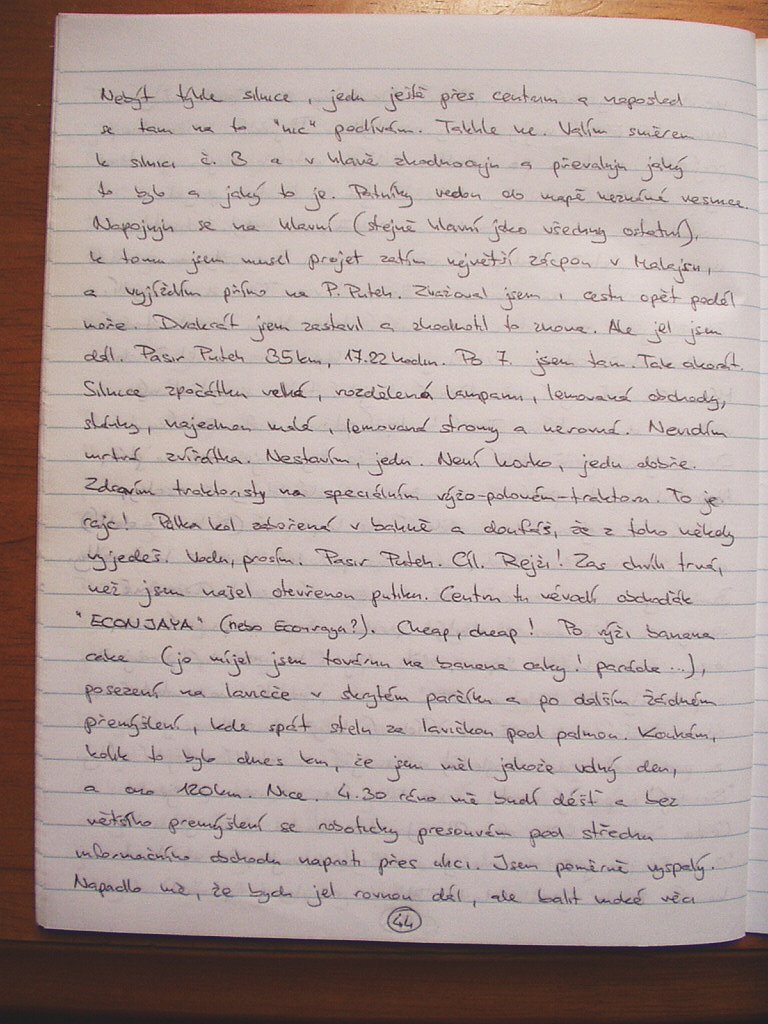 Nebýt týhle silnice, jedu ještě přes centrum a naposled
se tam na to "nic" podívám. Takhle ne. Valím směrem
k silnici č. 3 a v hlavě zhodnocuju a převaluju jaký
to bylo a jaký to je. Patníky vedou do mapě neznámé vesnice.
Napojuju se na hlavní (stejně hlavní jako všechny ostatní),
k tomu jsem musel projet zatím největší zácpou v Malajsii,
a vyjíždím přímo na P. Puteh. Zvažoval jsem i cestu opět podél
moře. Dvakrát jsem zastavil a zhodnotil to znova. Ale jel jsem
dál. Pasir Puteh 35km, 17.22 hodin. Po 7. jsem tam. Tak akorát.
Silnice zpočátku velká, rozdělená lampami, lemovaná obchody,
stánky, najednou malá, lemovaná stromy a nerovná. Nevidím
mrtvá zvířátka. Nestavím, jedu. Není horko, jedu dobře.
Zdravím traktoristy na speciálním rýžo-polovém-traktoru. To je
rajc! Půlka kol zabořená v bahně a doufáš, že z toho někdy
vyjedeš. Vodu, prosím. Pasir Puteh. Cíl. Rejži! Zas chvíli trvá,
než jsem našel otevřenou putiku. Centru tu vévodí obchoďák
"ECONJAYA" (nebo Econsaya?). Cheap, cheap! Po rýži banana
cake (jo míjel jsem továrnu na banana caky! paráda...),
posezení na lavičce v skrytém parčíku a po dalším žádném
přemýšlení, kde spát stelu za lavičkou pod palmou. Koukám,
kolik to bylo dnes km, že jsem měl jakože volný den,
a ono 120km. Nice. 4.30 ráno mě budí déšť a bez
většího přemýšlení se roboticky přesouvám pod střechu
informačního obchodu naproti přes ulici. Jsem poměrně vyspalý.
Napadlo mě, že bych jel rovnou dál, ale balit mokré věci
44